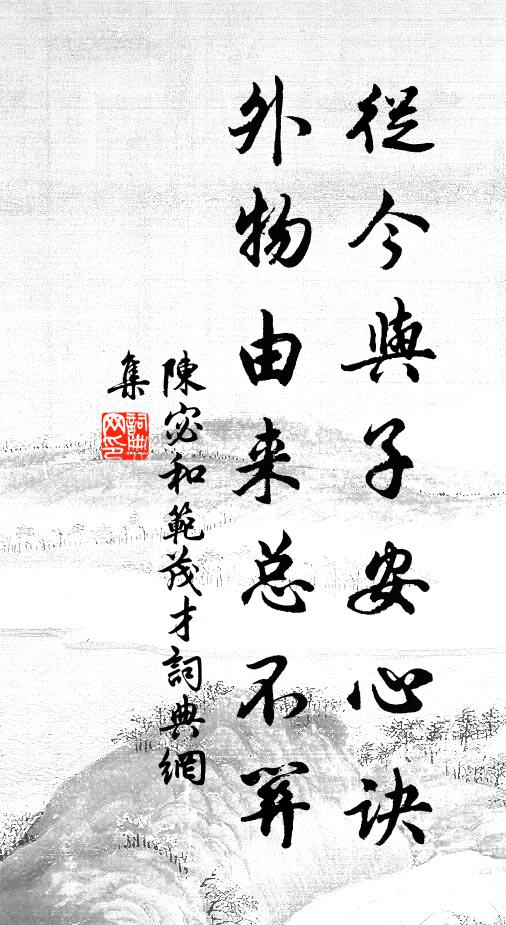 從今與子安心訣
外物由来总不関
陳宓和範茂才詞典網
集
詞典網印